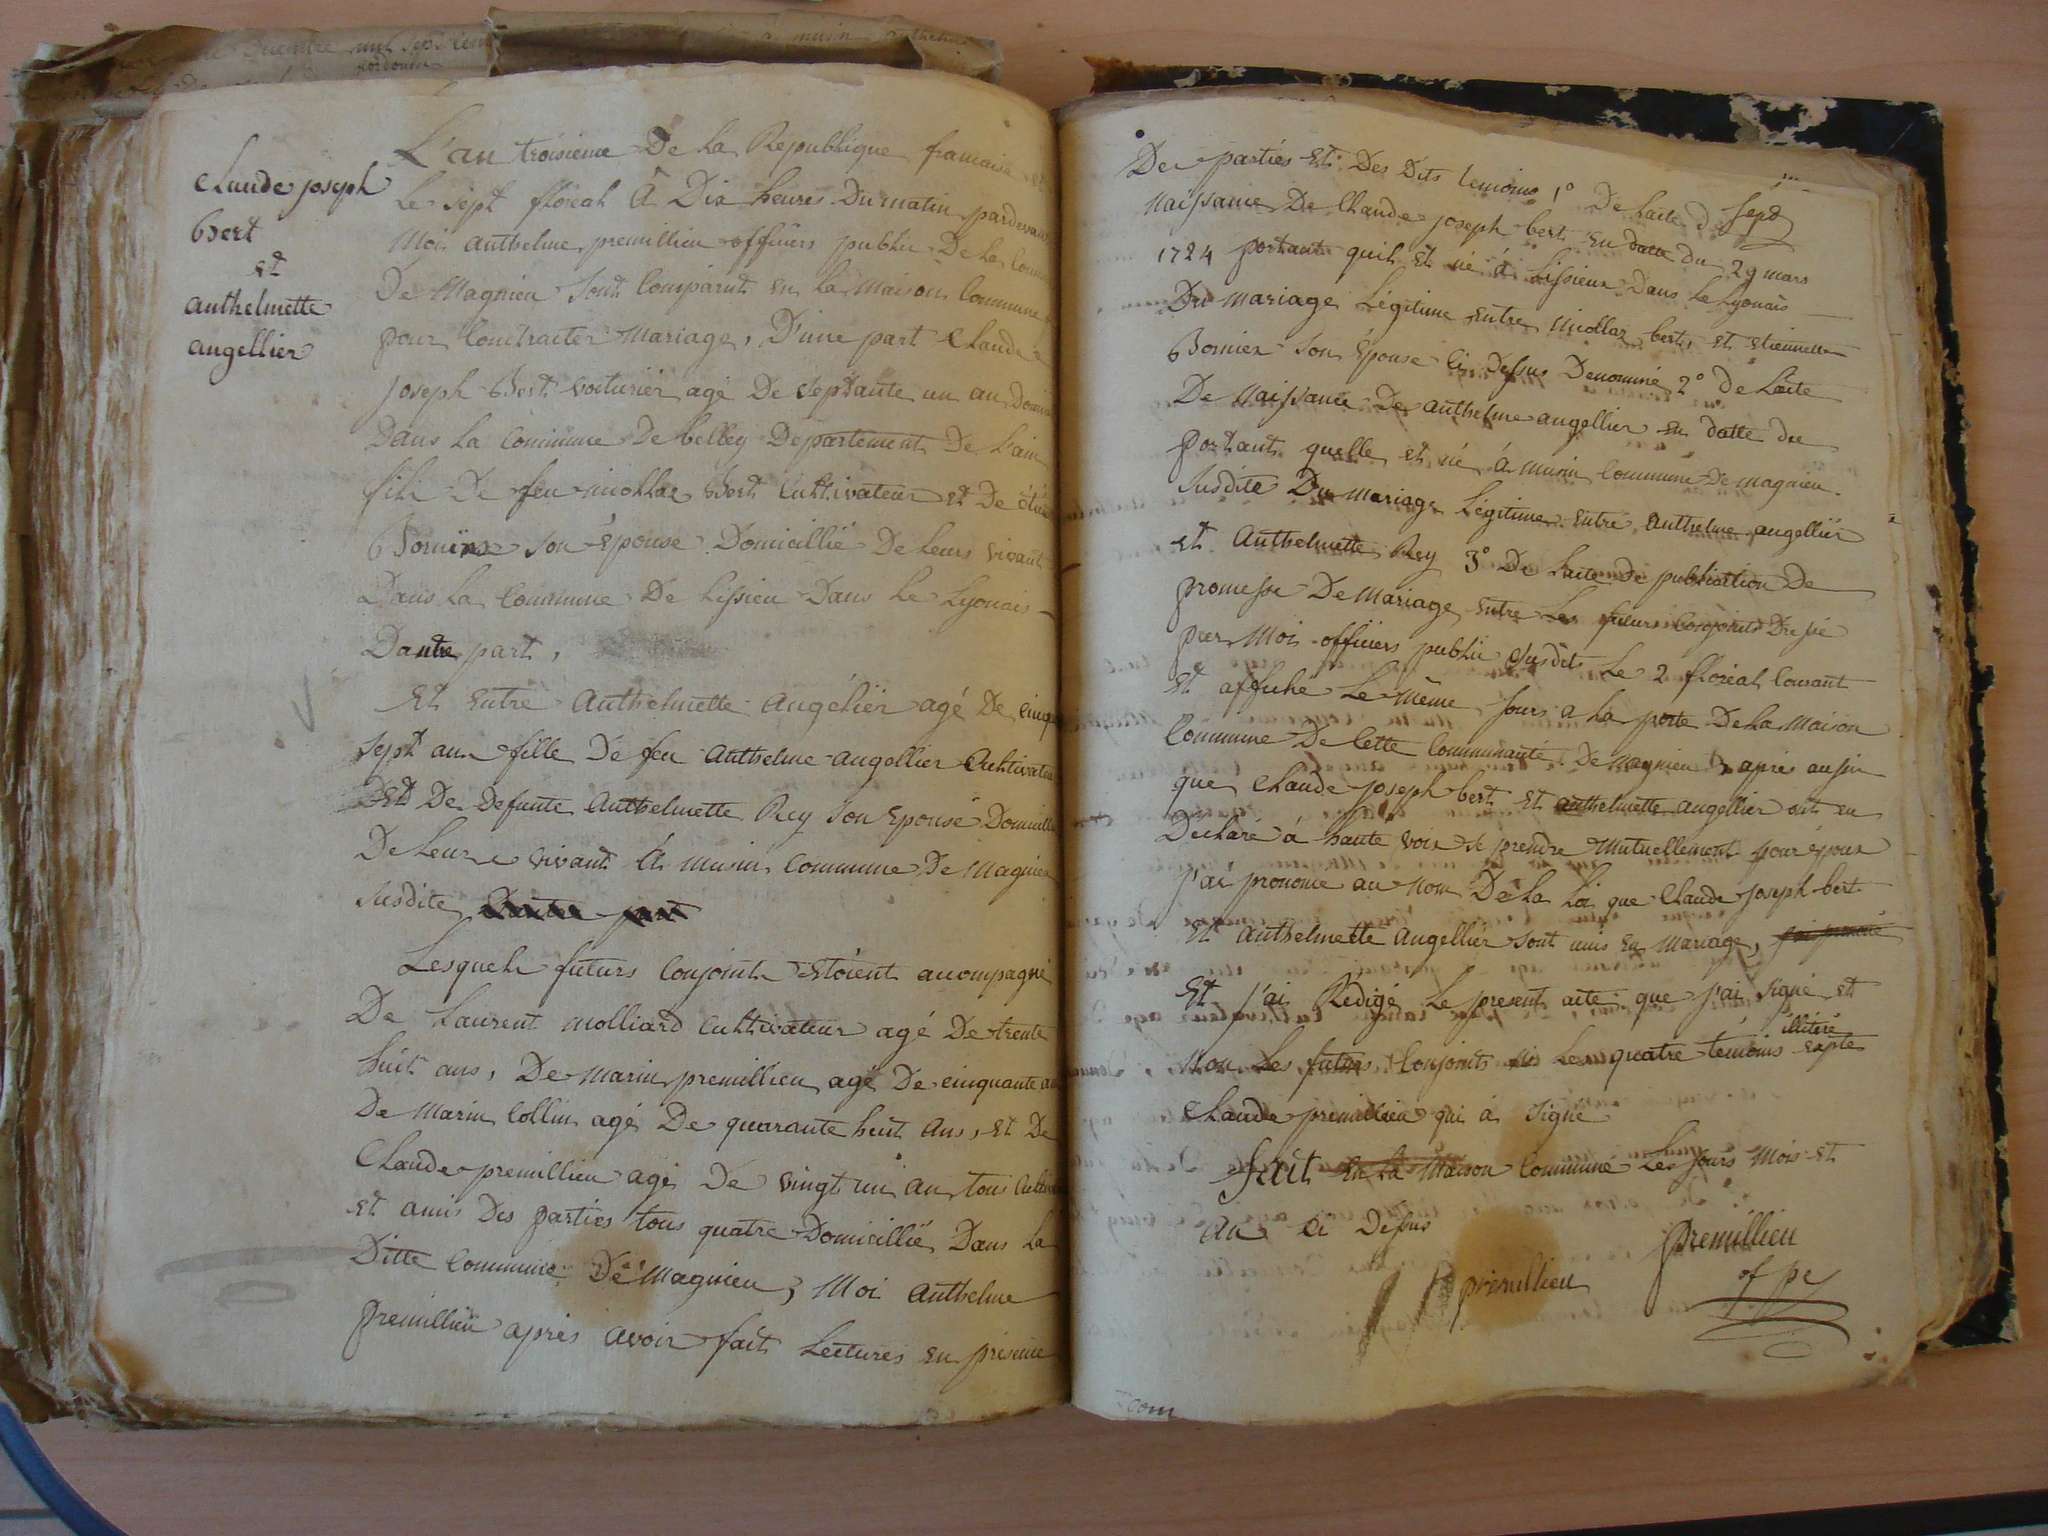 Claude joseph
Bert
et
anthelmette
angellier
L'an troisieme De la Republique francaise
Le sept floreal À Dix heures Du matin pardevant
Moi anthelme premillieu officiers public De la Comm
De Magnieu Sont Comparut en la Maison Commune
pour Contracter Mariage, D'une part Claude
joseph Bert voiturier agé De septante un an Domi
Dans la Commune De belley Departement De L'ain
fils De feu nicollas Bert Cultivateur et De
Bornier Son épouse Domicillié De leurs vivant
Dans La Commune De Lissieu Dans le Lyonais
Dautre part,
Et Entre Anthelmette Angélier agé De cinq
sept ans fille De feu anthelme angellier Cultivate
Et De Defunte Anthelmette Rey Son Epouse Domicill
De leurs vivant À munin Commune De Magnieu
Susdite
Lesquels futurs Conjoints Etoient acompagné
De Laurent Molliard Cultivateur agé De trente
huit ans, De Marin premillieu agé De cinquante an
De Marin Collin agé De quarante huit Ans, et De
Claude premillieu agé De vingt un an tous Cultiv
et amis Des parties tous quatre Domicillié Dans la
Ditte Commune De Magnieu, Moi Anthelme
premillieu apres avoir fait Lectures en presence
Des parties Et Des Dits temoins 1° De Lacte d
Naissance De Claude joseph bert en datte du 29 mars Sept
1724 portant quil et né á Lissieux Dans le Lyonais
Du mariage Légitime entre nicollas bert et etiennette
Bornier Son épouse Ci Dessus Denommé 2° De Lacte
De Naissance De anthelme angellier en datte du
portant quelle et né á munin Commune De magnieu
Susdite Du mariage Légitime entre Anthelme angellier
et Anthelmette Rey 3° De Lacte De publication De
promesse De Mariage entre Les futurs Conjoints Dressé
par Moi officiers public susdit Le 2 floreal Courant
et affiché Le même jours a la porte De la Maison
Commune De Cette Communauté De Magnieu, apres aussi
que Claude joseph bert et anthelmette angellier ait eu
Declaré á haute voix se prendre mutuellement pour époux
j'ai prononcé au Nom De la Loi que Claude joseph bert
et Anthelmette Angellier sont unis en mariage, j'ai prononcé
Et j'ai Redigé Le present acte que j'ai signé et
illiteré
Non Les futurs Conjoints ni Les quatre témoins Expté
Claude premillieu qui á Signé
fait en la Maison Commune Les jours Mois et
An Ci Dessus
premillieu
premillieu
of pc
Com